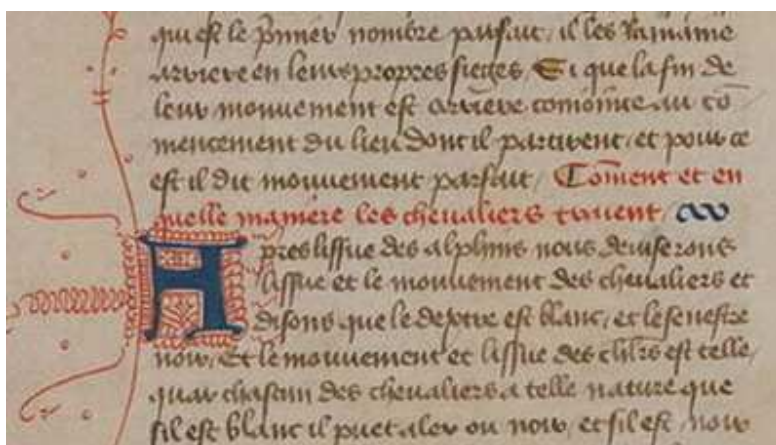 qui est le p̃mier nombre parfait / il les ramaine
arriere en leurs propres sieges / Et que la fin de
leur mouuement est arriere comoincte au cõ
mencement du lieu dont il partirent / et pour ce
est il dit mouuement parfait / Com̃ent et en
quelle maniere les cheualiers traient /
Apres lissue des alphins nous deuiserons
lissue et le mouuement des cheualiers et
disons que le deptre est blanc / et le senestre
noir / Et le mouuement et lissue des chl̃rs est telle /
quar chascun des cheualiers a telle nature que
sil est blanc il puet aler ou noir / et sil est noir